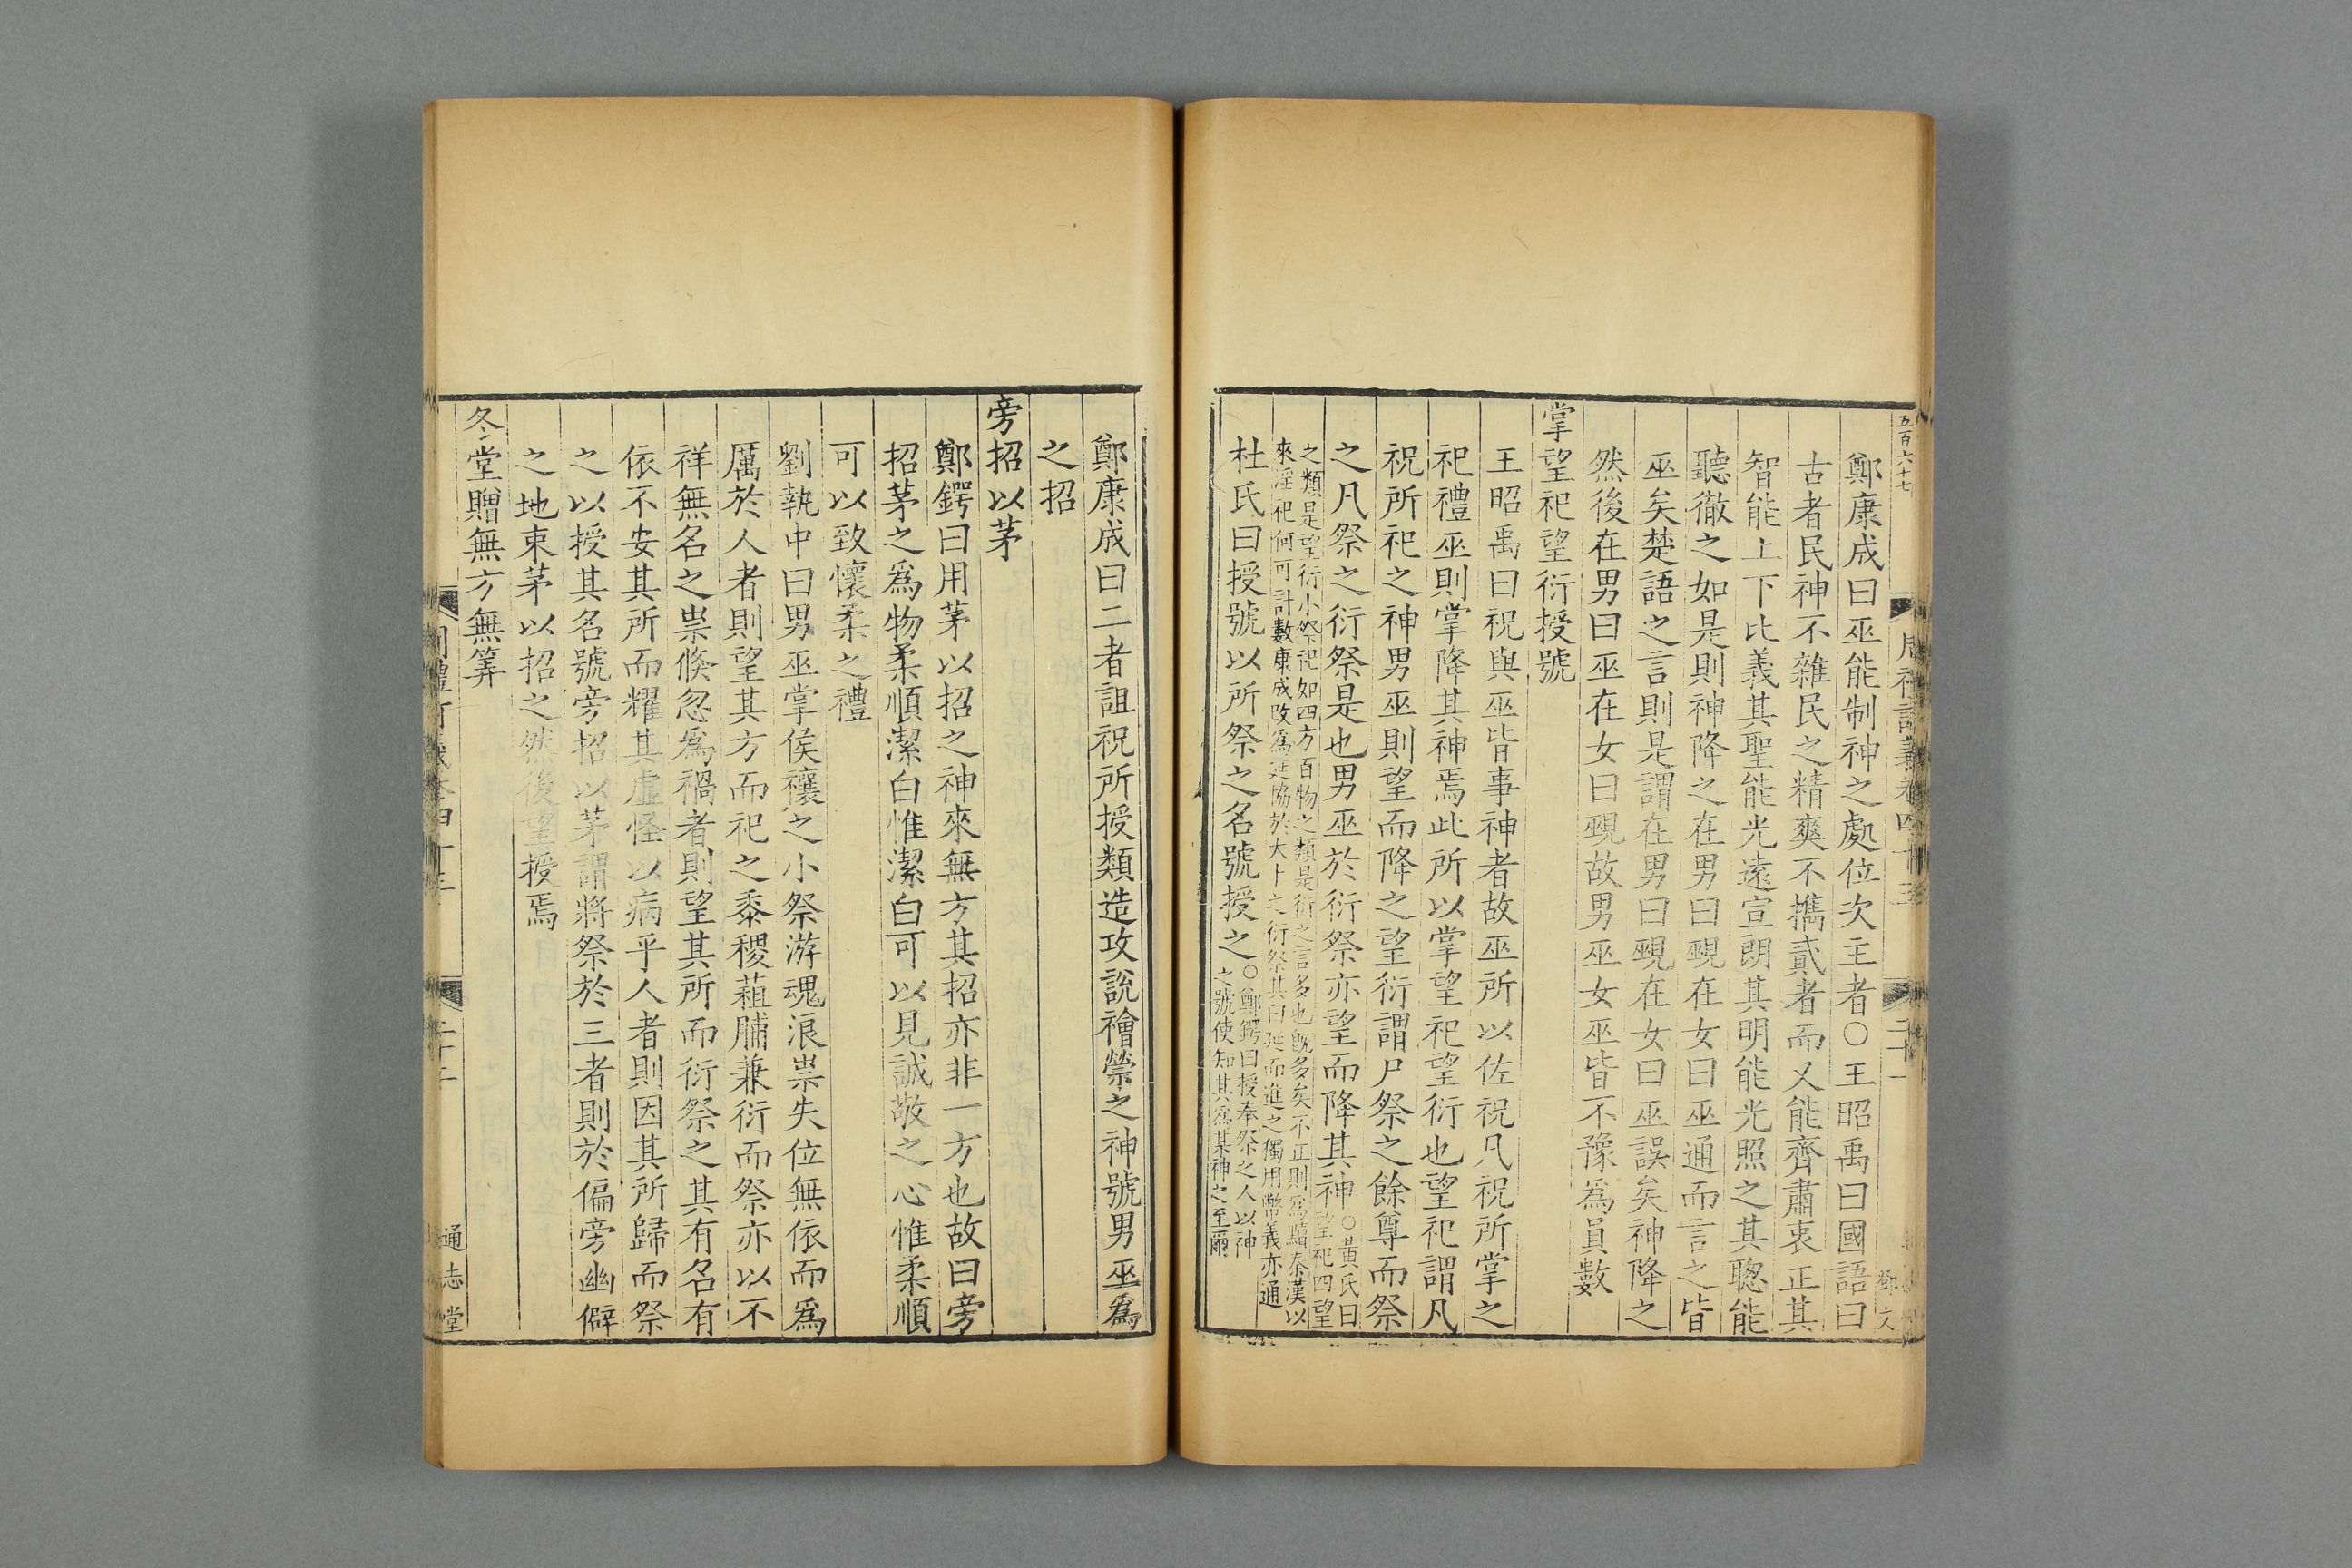 五百六十七
鄭康成曰巫能制神之處位次主者○王昭禹曰國語曰
古者民神不雜民之精爽不攜貳者而又能齊肅衷正其
智能上下比義其聖能光遠宣朗其明能光照之其聰能
聽徹之如是則神降之在男曰覡在女曰巫通而言之皆
巫矣楚語之言則是謂在男曰覡在女曰巫誤矣神降之
然後在男曰巫在女曰覡故男巫女巫皆不豫為員數
掌望祀望衍授號
王昭禹曰祝與巫皆事神者故巫所以佐祝凡祝所掌之
祀禮巫則掌降其神焉此所以掌望祀望衍也望祀謂凡
祝所祀之神男巫則望而降之望衍謂尸祭之餘尊而祭
之凡祭之衍祭是也男巫於衍祭亦望而降其神○黃氏曰望祀四望
之類是望衍小祭祀如四方百物之類是衍之言多也既多矣不正則為黷秦漢以
來淫祀何可計數康成改為延協於大卜之衍祭其曰延而進之獨用幣義亦通
杜氏曰授號以所祭之名號授之○鄭鍔曰授奉祭之人以神之號使知其為某神之至爾
鄭康成曰二者詛祝所授類造攻說禬禜之神號男巫爲
之招
旁招以茅
鄭鍔曰用茅以招之神來無方其招亦非一方也故曰旁
招茅之爲物柔順潔白惟潔白可以見誠敬之心惟柔順
可以致懷柔之禮
劉執中曰男巫掌侯禳之小祭游魂浪祟失位無依而爲
厲於人者則望其方而祀之黍稷葅脯兼衍而祭亦以不
祥無名之祟倐忽爲禍者則望其所而衍祭之其有名有
依不安其所而耀其虛怪以病乎人者則因其所歸而祭
之以授其名號旁招以茅謂將祭於三者則於偏旁幽僻
之地束茅以招之然後望授焉
冬堂贈無方無筭
通志堂